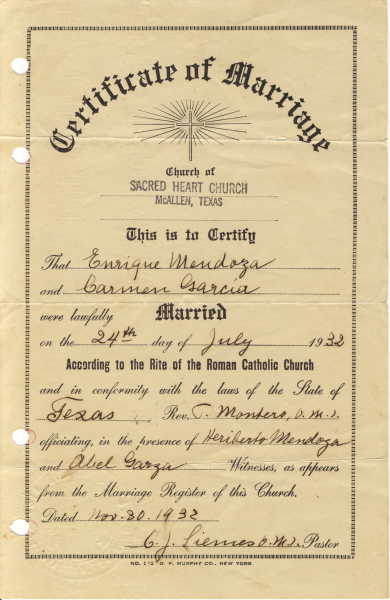 Certificate of Marriage
Church of
SACRED HEART CHURCH
McALLEN, TEXAS
This is to Certify
That Enrique Mendoza
and Carmen Garcia
were lawfully Married
on the 24th day of July 1932
According to the Rite of the Roman Catholic Church
and in conformity with the laws of the State of
Texas Rev. T. Montero, O.M.I.
officiating, in the presence of Heriberto Mendoza
and Abel Garza Witnesses, as appears
from the Marriage Register of this Church.
Dated Nov. 30. 1932
O.M.I. Pastor
D. P. MURPHY CO., NEW YORK